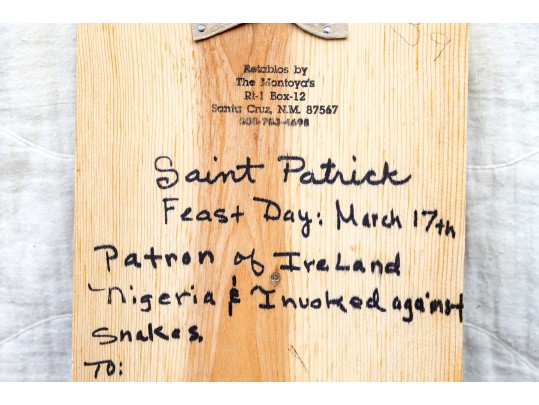 Retablos by
The Montoya's
Rt-1 Box-12
Santa Cruz, N.M. 87567
Saint Patrick
Feast Day: March 17th
Patron of IreLand
Nigeria & Invoked against
Snakes.
To: